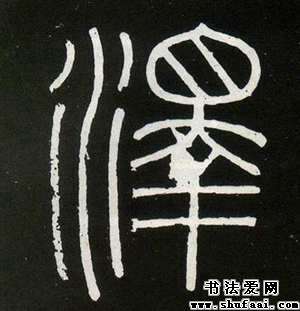 澤
书法爱网
www.shufaai.com